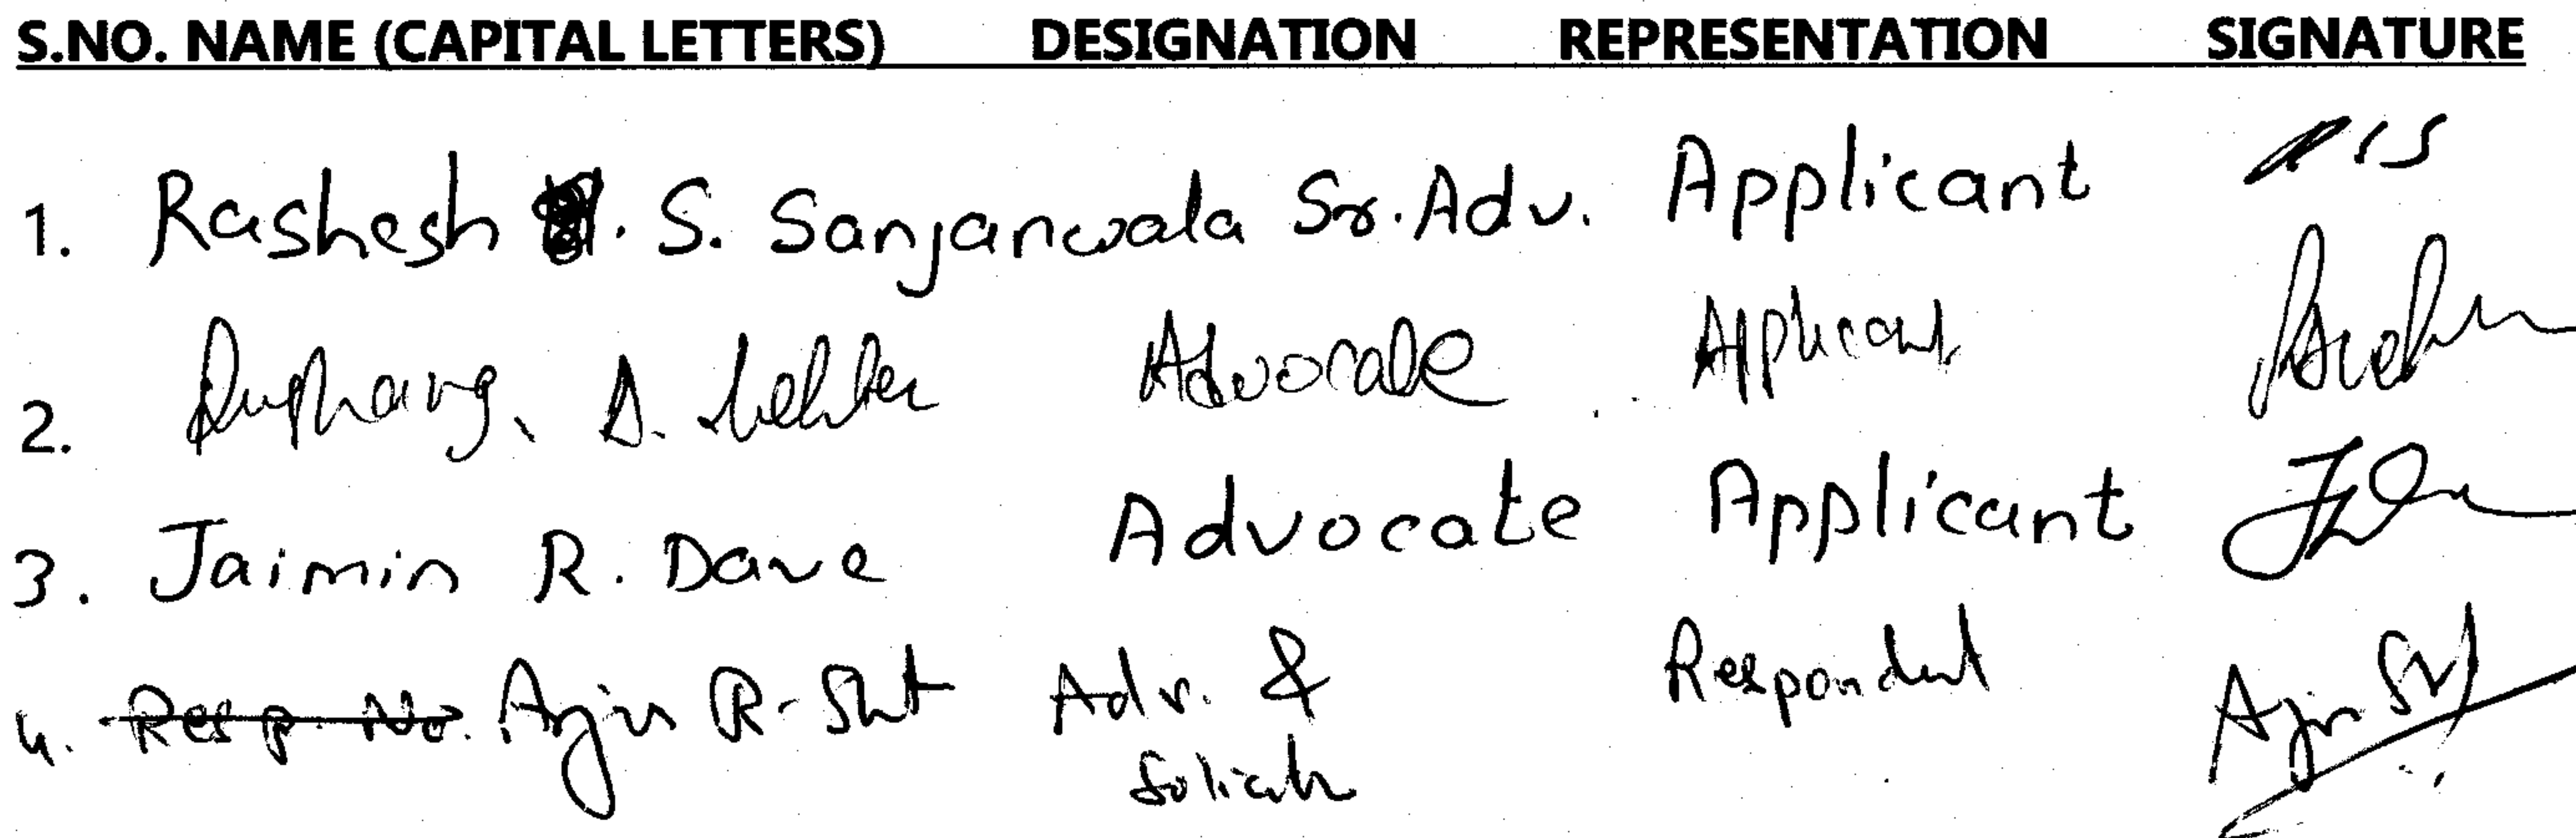 S.NO. NAME (CAPITAL LETTERS) DESIGNATION REPRESENTATION SIGNATURE
1. Rashesh S. Sanjanwala Sr. Adv. Applicant
2. D. Advocate Applicant
3. Jaimin R. Dave Advocate Applicant
4. Resp. No. Arjun R. Adv. & Respondent